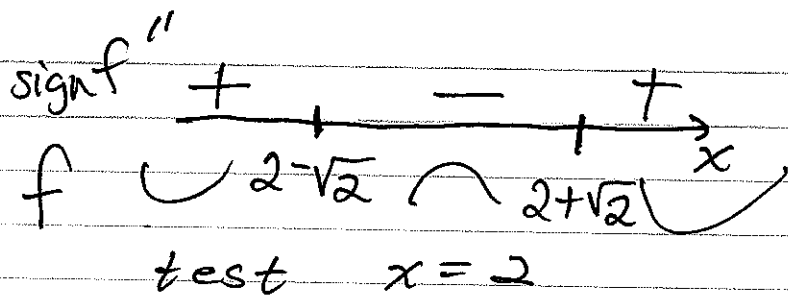 sign f'' + − +
x
f 2-√2 2+√2
test x = 2